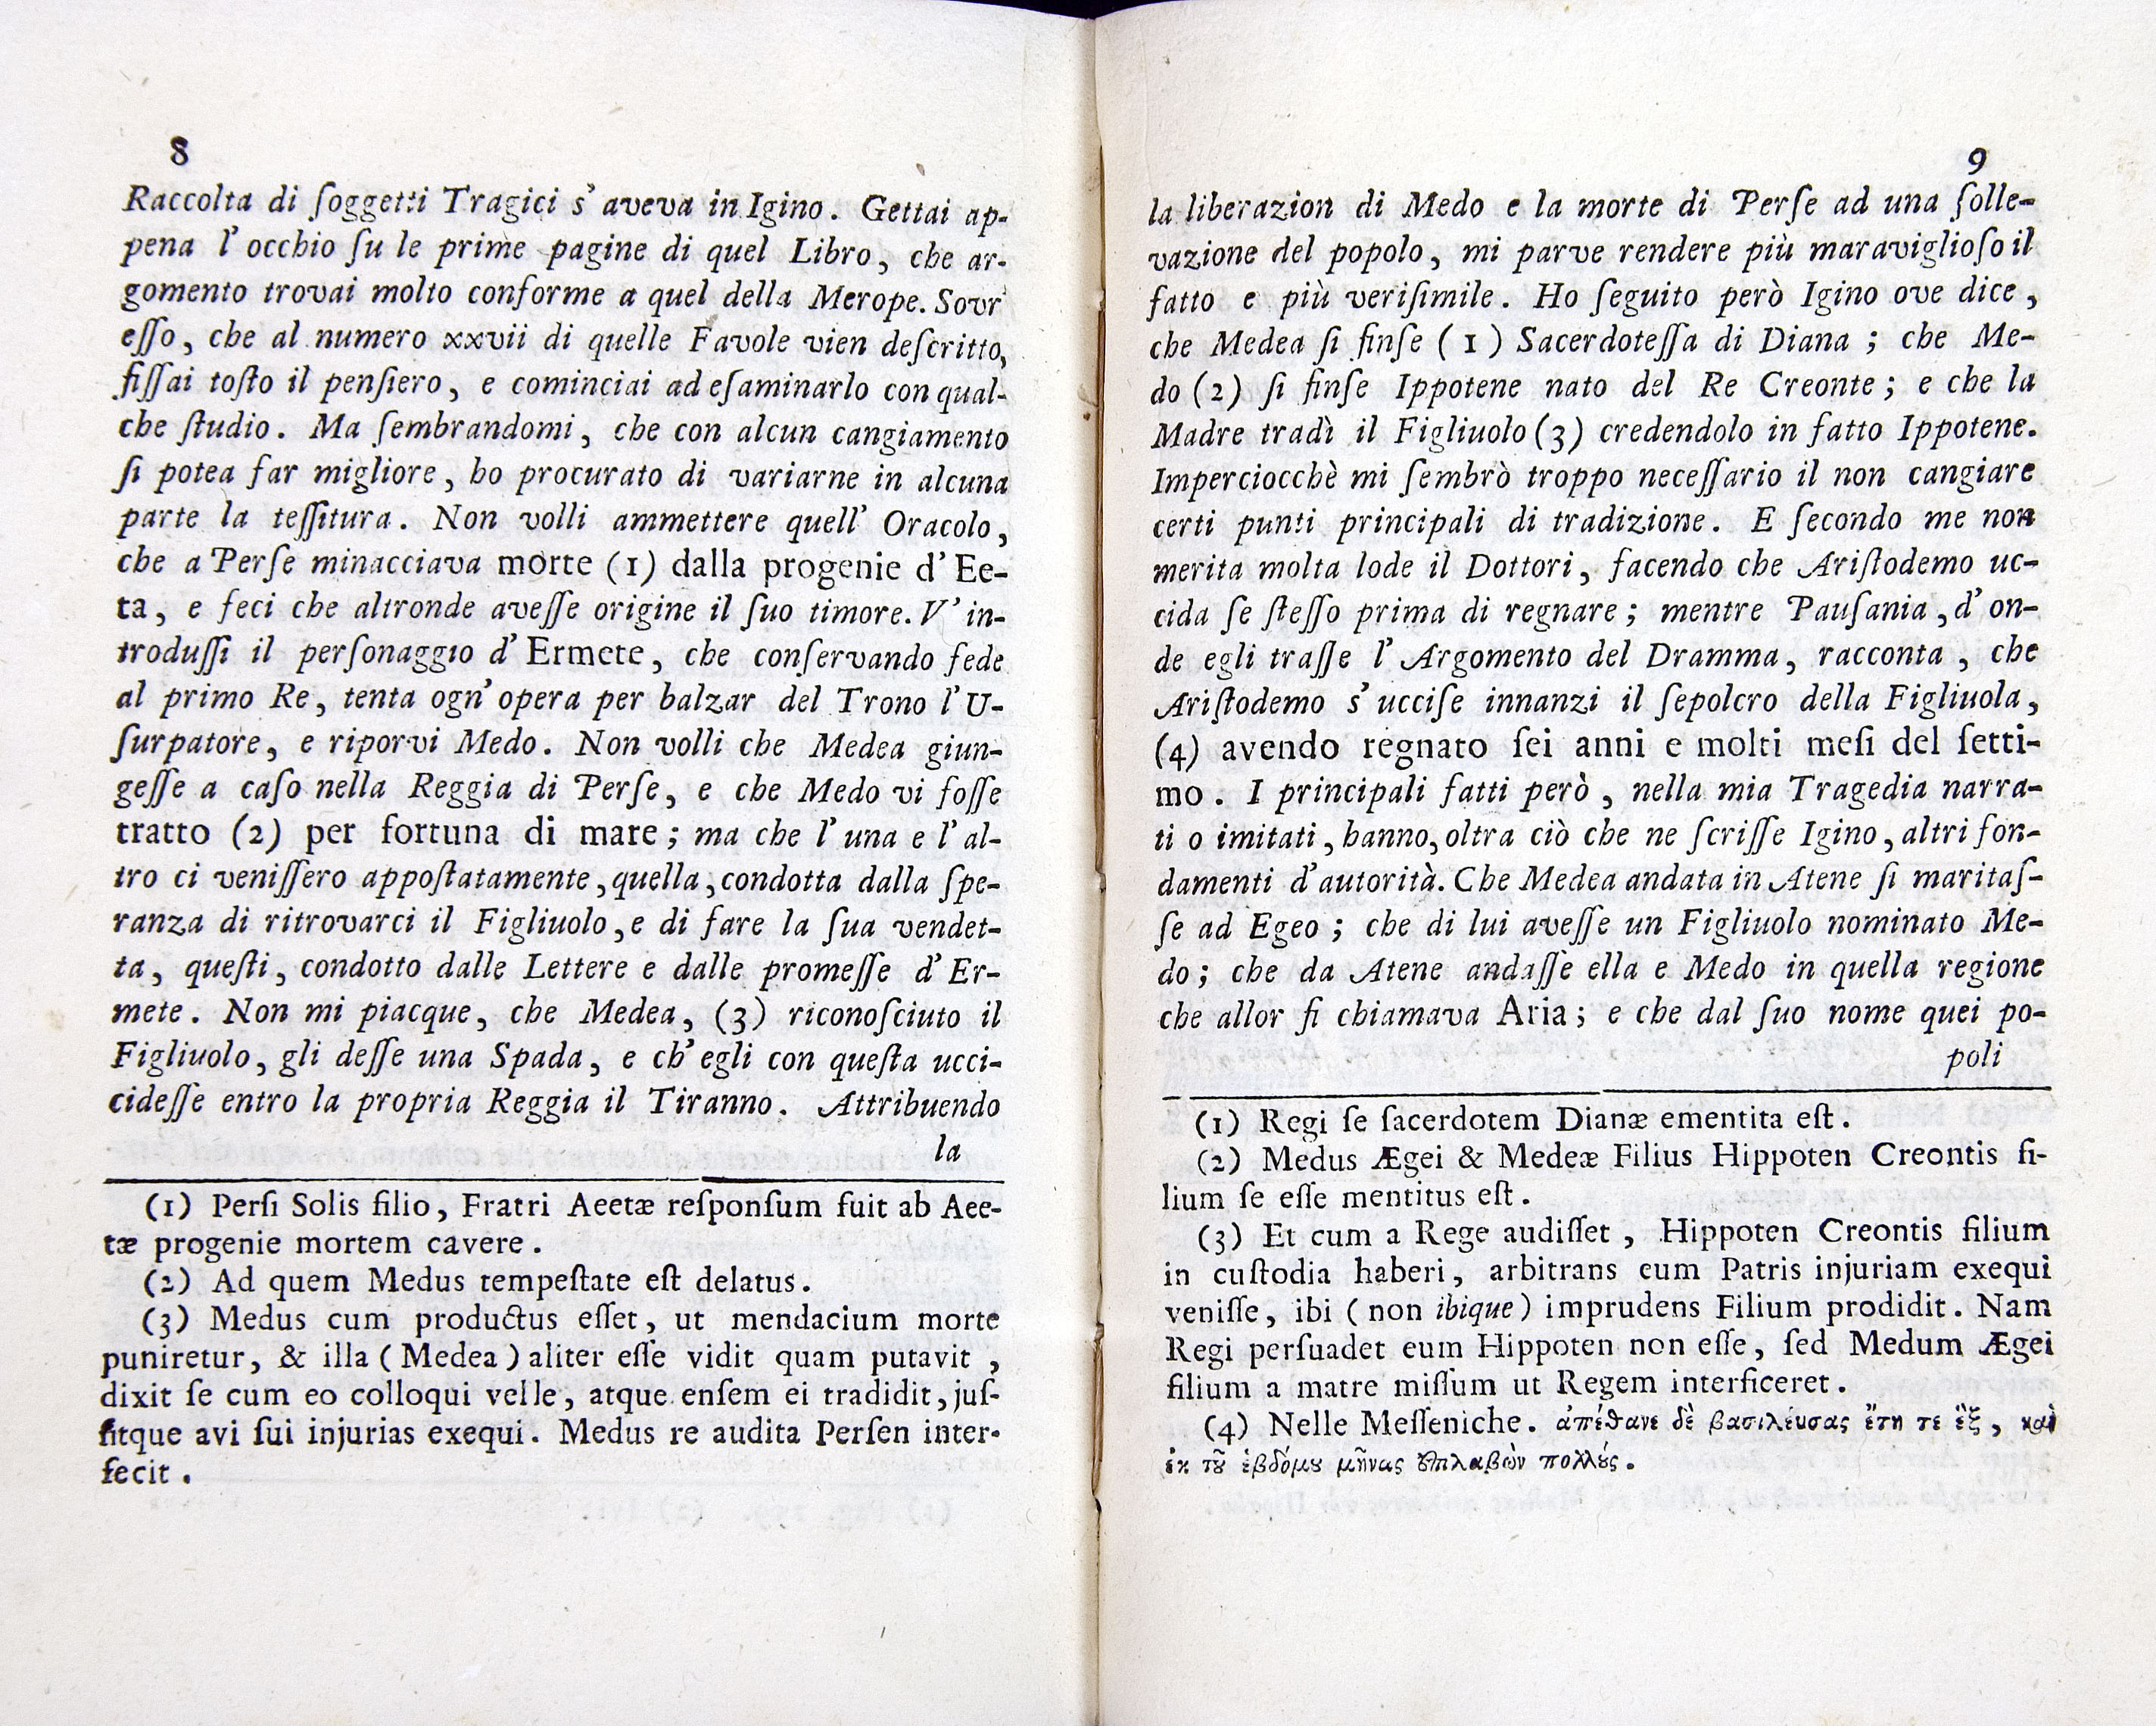 8
Raccolta di ſoggetti Tragici s' aveva in Igino. Gettai ap-
pena l' occhio ſu le prime pagine di quel Libro, che ar-
gomento trovai molto conforme a quel della Merope. Sovr'
eſſo, che al numero xxvii di quelle Favole vien deſcritto,
fiſſai toſto il penſiero, e cominciai ad eſaminarlo con qual-
che ſtudio. Ma ſembrandomi, che con alcun cangiamento
ſi potea far migliore, ho procurato di variarne in alcuna
parte la teſſitura. Non volli ammettere quell' Oracolo,
che a Perſe minacciava morte (1) dalla progenie d' Ee-
ta, e feci che altronde aveſſe origine il ſuo timore. V' in-
troduſſi il perſonaggio d' Ermete, che conſervando fede
al primo Re, tenta ogn' opera per balzar del Trono l' U-
ſurpatore, e riporvi Medo. Non volli che Medea giun-
geſſe a caſo nella Reggia di Perſe, e che Medo vi foſſe
tratto (2) per fortuna di mare; ma che l' una e l' al-
tro ci veniſſero appoſtatamente, quella, condotta dalla ſpe-
ranza di ritrovarci il Figliuolo, e di fare la ſua vendet-
ta, queſti, condotto dalle Lettere e dalle promeſſe d' Er-
mete. Non mi piacque, che Medea, (3) riconoſciuto il
Figliuolo, gli deſſe una Spada, e ch' egli con queſta ucci-
cideſſe entro la propria Reggia il Tiranno. Attribuendo
la
(1) Perſi Solis filio, Fratri Aeetæ reſponſum fuit ab Aee-
tæ progenie mortem cavere.
(2) Ad quem Medus tempeſtate eſt delatus.
(3) Medus cum productus eſſet, ut mendacium morte
puniretur, & illa (Medea) aliter eſſe vidit quam putavit,
dixit ſe cum eo colloqui velle, atque enſem ei tradidit, juſ-
ſitque avi ſui injurias exequi. Medus re audita Perſen inter-
fecit.
9
la liberazion di Medo e la morte di Perſe ad una ſolle-
vazione del popolo, mi parve rendere più maraviglioſo il
fatto e più veriſimile. Ho ſeguito però Igino ove dice,
che Medea ſi finſe (1) Sacerdoteſſa di Diana; che Me-
do (2) ſi finſe Ippotene nato del Re Creonte; e che la
Madre tradì il Figliuolo (3) credendolo in fatto Ippotene.
Imperciocchè mi ſembrò troppo neceſſario il non cangiare
certi punti principali di tradizione. E ſecondo me non
merita molta lode il Dottori, facendo che Ariſtodemo uc-
cida ſe ſteſſo prima di regnare; mentre Pauſania, d' on-
de egli traſſe l' Argomento del Dramma, racconta, che
Ariſtodemo s' ucciſe innanzi il ſepolcro della Figliuola,
(4) avendo regnato ſei anni e molti meſi del ſetti-
mo. I principali fatti però, nella mia Tragedia narra-
ti o imitati, hanno, oltra ciò che ne ſcriſſe Igino, altri fon-
damenti d' autorità. Che Medea andata in Atene ſi maritaſ-
ſe ad Egeo; che di lui aveſſe un Figliuolo nominato Me-
do; che da Atene andaſſe ella e Medo in quella regione
che allor ſi chiamava Aria; e che dal ſuo nome quei po-
poli
(1) Regi ſe ſacerdotem Dianæ ementita eſt.
(2) Medus Ægei & Medeæ Filius Hippoten Creontis fi-
lium ſe eſſe mentitus eſt.
(3) Et cum a Rege audiſſet, Hippoten Creontis filium
in cuſtodia haberi, arbitrans eum Patris injuriam exequi
veniſſe, ibi (non ibique) imprudens Filium prodidit. Nam
Regi perſuadet eum Hippoten non eſſe, ſed Medum Ægei
filium a matre miſſum ut Regem interficeret.
(4) Nelle Meſſeniche. ἀπέθανε δὲ βασιλέυσας ἔτη τε ἓξ, καὶ
ἐκ τȣ͂ ἑβδόμȣ μῆνας ἐπιλαβὼν πολλȣ́ς.